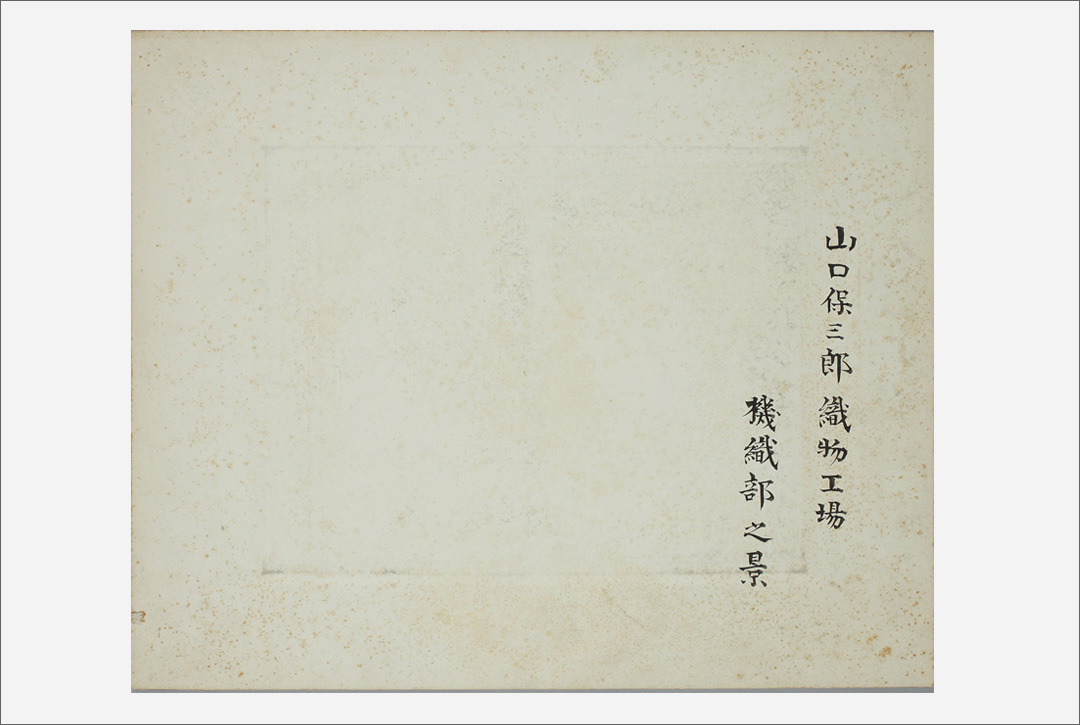 山口保三郎織物工場
機織部之景